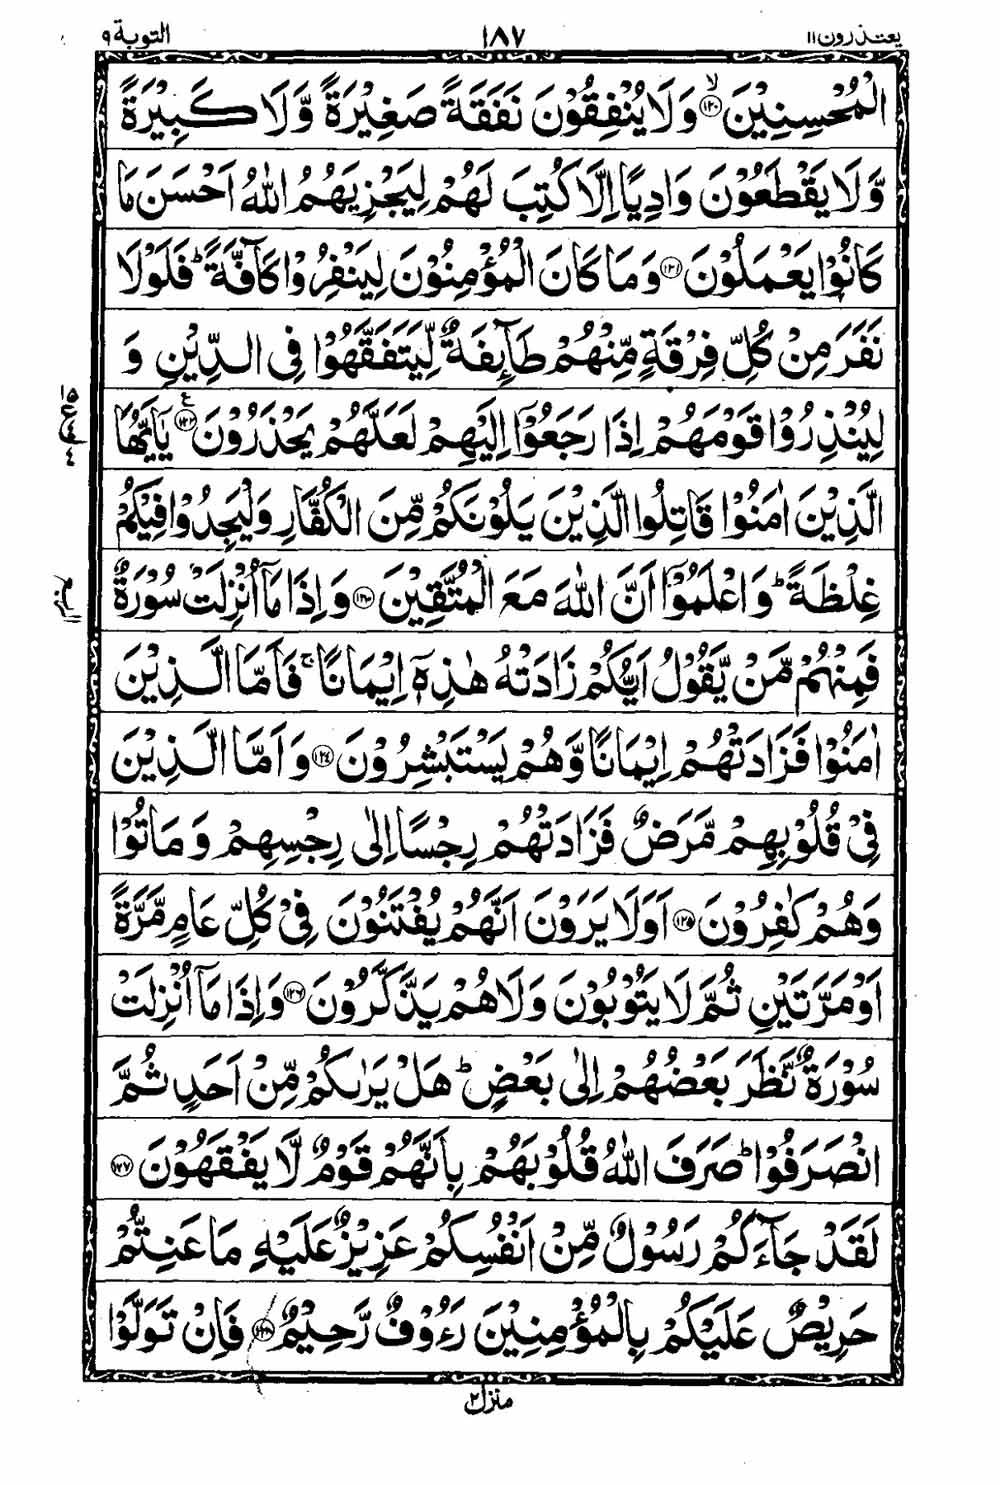 يعتذرون ١١
١٨٧
التوبة ٩
الْمُحْسِنِيْنَ ﴿١٢٠﴾ۙ وَلَا يُنْفِقُوْنَ نَفَقَةً صَغِيْرَةً وَّلَا كَبِيْرَةً
وَّلَا يَقْطَعُوْنَ وَادِيًا اِلَّا كُتِبَ لَهُمْ لِيَجْزِيَهُمُ اللّٰهُ اَحْسَنَ مَا
كَانُوْا يَعْمَلُوْنَ ﴿١٢١﴾ وَمَا كَانَ الْمُؤْمِنُوْنَ لِيَنْفِرُوْا كَآفَّةً ؕ فَلَوْلَا
نَفَرَ مِنْ كُلِّ فِرْقَةٍ مِّنْهُمْ طَآئِفَةٌ لِّيَتَفَقَّهُوْا فِى الدِّيْنِ وَ
لِيُنْذِرُوْا قَوْمَهُمْ اِذَا رَجَعُوْٓا اِلَيْهِمْ لَعَلَّهُمْ يَحْذَرُوْنَ ﴿١٢٢﴾ع يٰٓاَيُّهَا
الَّذِيْنَ اٰمَنُوْا قَاتِلُوا الَّذِيْنَ يَلُوْنَكُمْ مِّنَ الْكُفَّارِ وَلْيَجِدُوْا فِيْكُمْ
غِلْظَةً ؕ وَاعْلَمُوْٓا اَنَّ اللّٰهَ مَعَ الْمُتَّقِيْنَ ﴿١٢٣﴾ وَاِذَا مَآ اُنْزِلَتْ سُوْرَةٌ
فَمِنْهُمْ مَّنْ يَّقُوْلُ اَيُّكُمْ زَادَتْهُ هٰذِهٖٓ اِيْمَانًا ۚ فَاَمَّا الَّذِيْنَ
اٰمَنُوْا فَزَادَتْهُمْ اِيْمَانًا وَّهُمْ يَسْتَبْشِرُوْنَ ﴿١٢٤﴾ وَاَمَّا الَّذِيْنَ
فِيْ قُلُوْبِهِمْ مَّرَضٌ فَزَادَتْهُمْ رِجْسًا اِلٰى رِجْسِهِمْ وَمَاتُوْا
وَهُمْ كٰفِرُوْنَ ﴿١٢٥﴾ اَوَلَا يَرَوْنَ اَنَّهُمْ يُفْتَنُوْنَ فِيْ كُلِّ عَامٍ مَّرَّةً
اَوْ مَرَّتَيْنِ ثُمَّ لَا يَتُوْبُوْنَ وَلَا هُمْ يَذَّكَّرُوْنَ ﴿١٢٦﴾ وَاِذَا مَآ اُنْزِلَتْ
سُوْرَةٌ نَّظَرَ بَعْضُهُمْ اِلٰى بَعْضٍ ؕ هَلْ يَرٰىكُمْ مِّنْ اَحَدٍ ثُمَّ
انْصَرَفُوْا ؕ صَرَفَ اللّٰهُ قُلُوْبَهُمْ بِاَنَّهُمْ قَوْمٌ لَّا يَفْقَهُوْنَ ﴿١٢٧﴾
لَقَدْ جَآءَكُمْ رَسُوْلٌ مِّنْ اَنْفُسِكُمْ عَزِيْزٌ عَلَيْهِ مَا عَنِتُّمْ
حَرِيْصٌ عَلَيْكُمْ بِالْمُؤْمِنِيْنَ رَءُوْفٌ رَّحِيْمٌ ﴿١٢٨﴾ فَاِنْ تَوَلَّوْا
منزل ٢